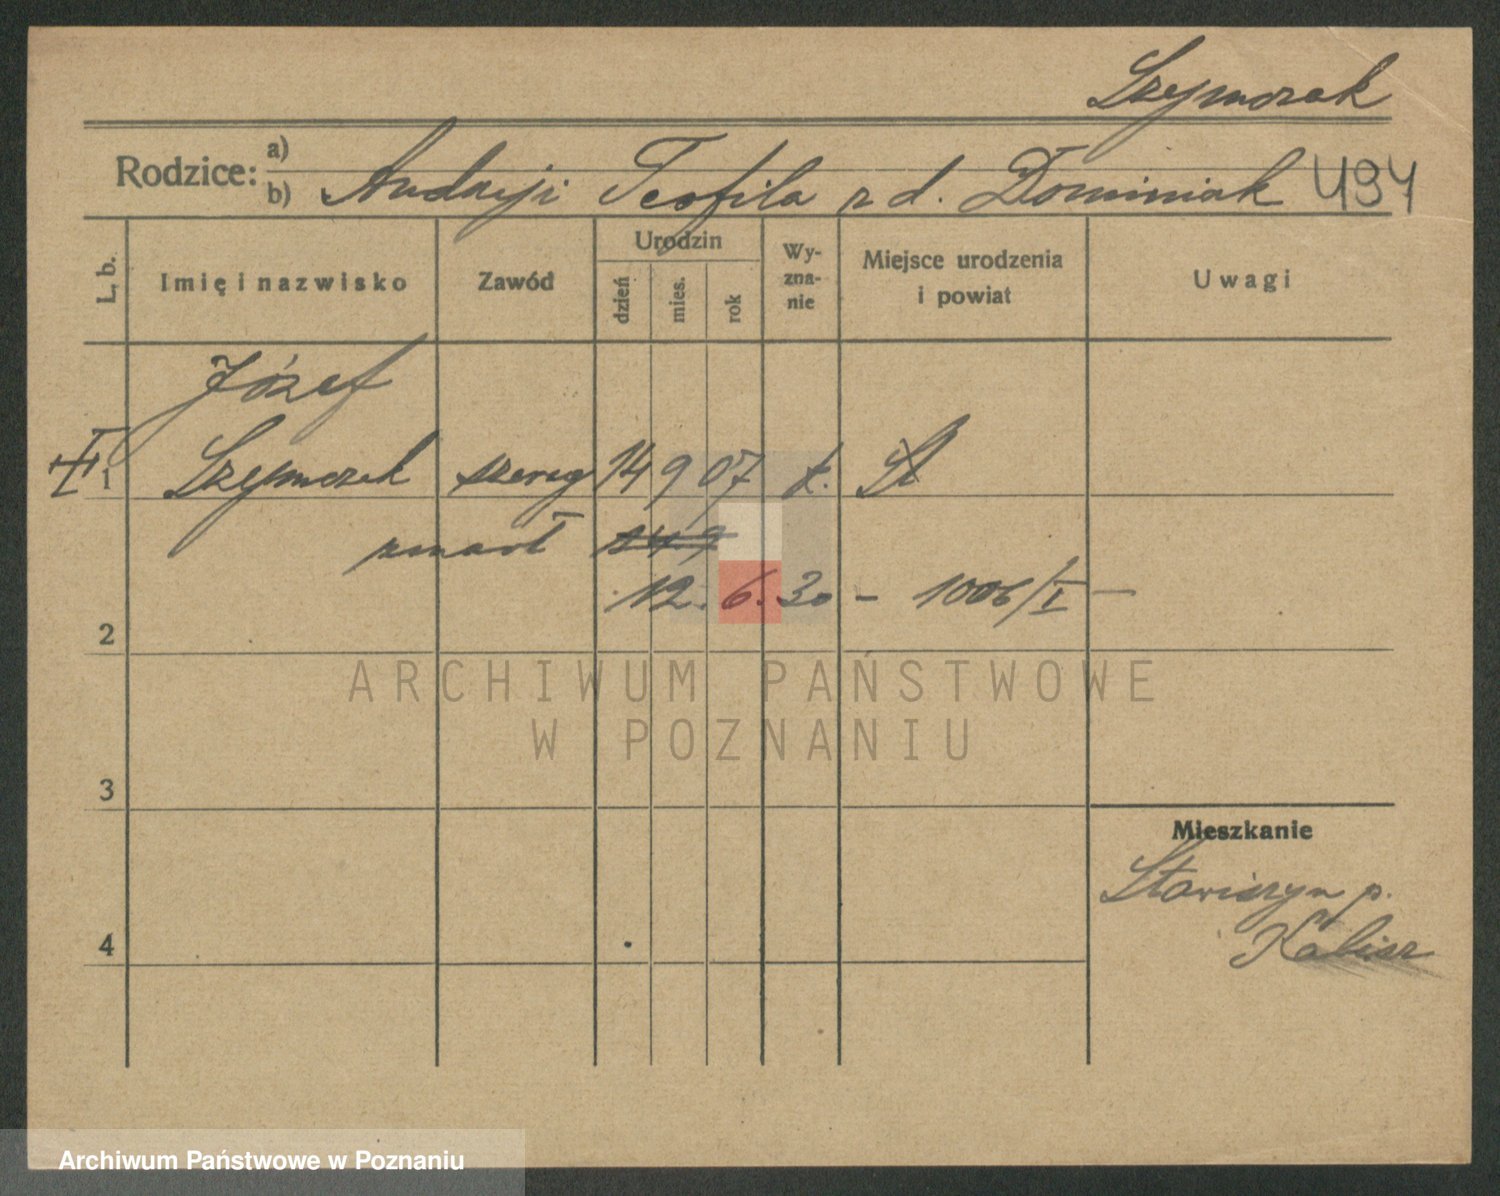 Szymczak
Rodzice: a)
b) Andrzeji Teofila z d. Dominiak 494
L. b. Imię i nazwisko Zawód Urodzin dzień mies. rok Wy-zna-nie Miejsce urodzenia i powiat Uwagi
Józef
1 Szymczak szereg 14 9 07 k.
zmarł 14.9
12. 6. 30 – 1006/I –
2
ARCHIWUM PAŃSTWOWE
W POZNANIU
3
Mieszkanie
Stawiszyn p.
Kalisz
4
Archiwum Państwowe w Poznaniu